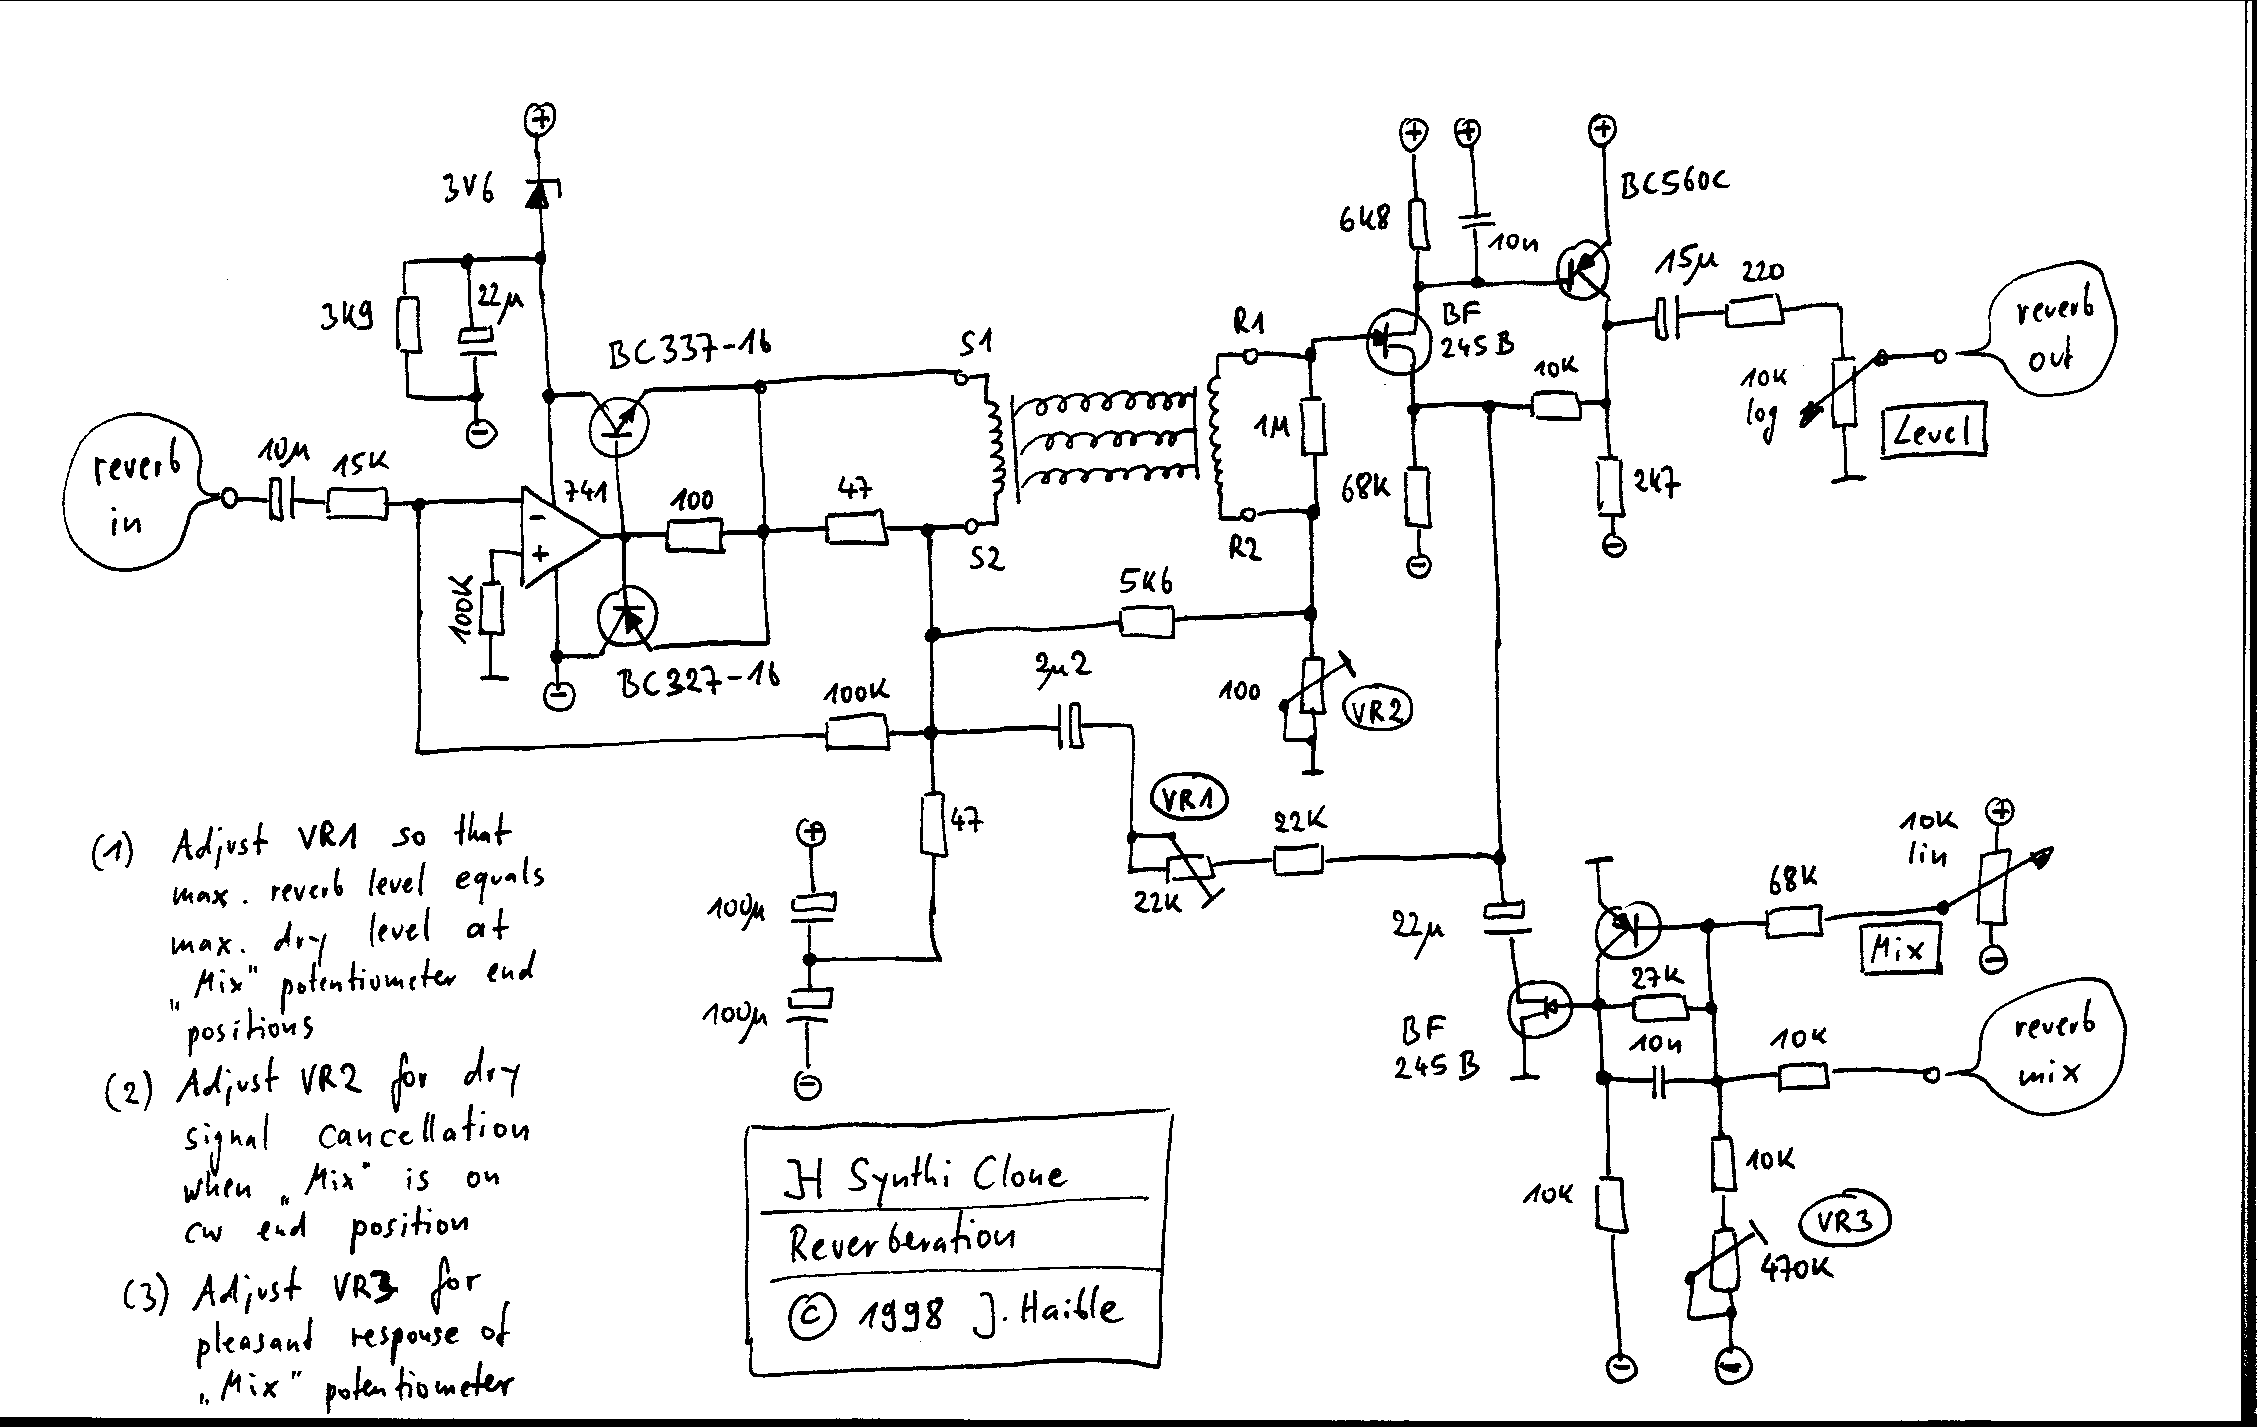 3V6
BC560C
6K8
10n
3K9
22µ
15µ
220
BC337-16
S1
R1
BF
245B
10K
reverb
out
10K
log
Level
reverb
in
10µ
15K
741
-
+
100
47
1M
68K
2K7
S2
R2
100K
5K6
BC327-16
100K
2µ2
100
VR2
VR1
47
22K
22K
100µ
100µ
22µ
68K
10K
lin
Mix
27K
BF
245B
10n
10K
reverb
mix
10K
10K
VR3
470K
(1) Adjust VR1 so that
max. reverb level equals
max. dry level at
„Mix" potentiometer end
positions
(2) Adjust VR2 for dry
signal cancellation
when „Mix" is on
cw end position
(3) Adjust VR3 for
pleasant response of
„Mix" potentiometer
JH Synthi Clone
Reverberation
© 1998 J. Haible